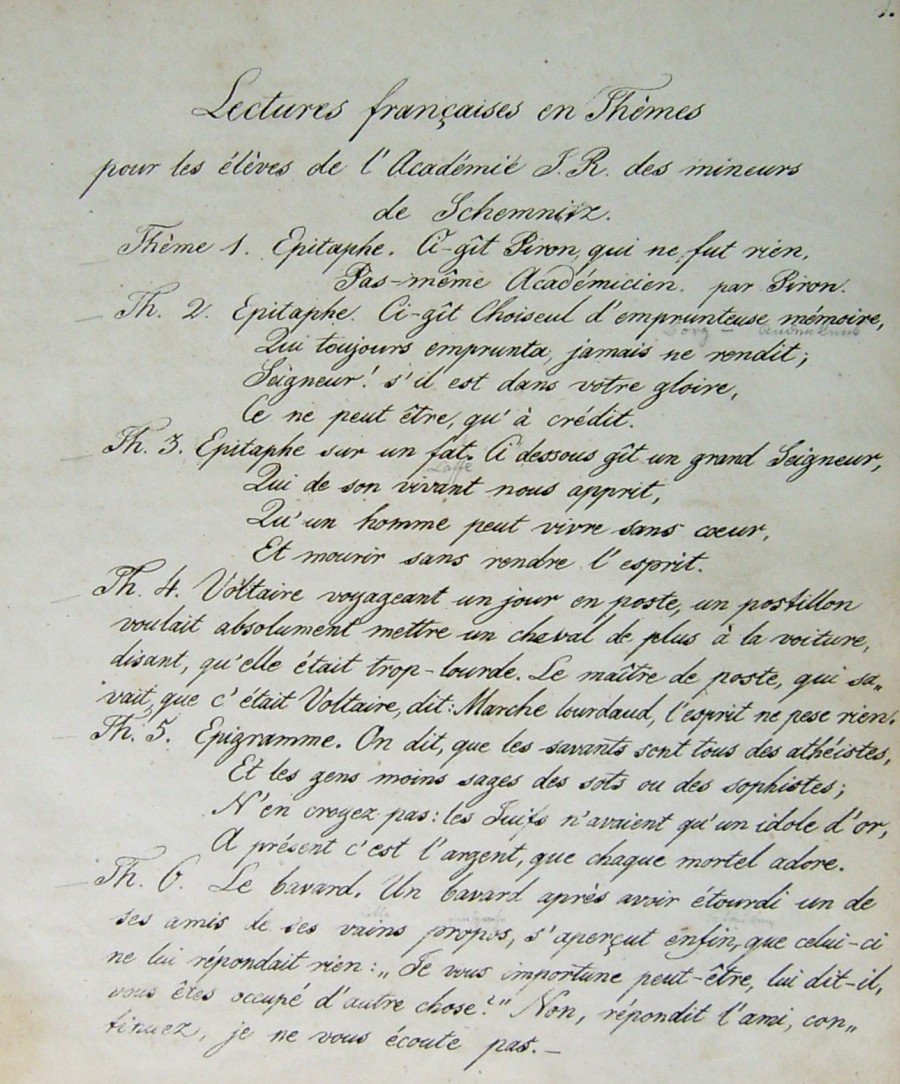 1.
Lectures françaises en Thèmes
pour les élèves de l'Académié I. R. des mineurs
de Schemnitz.
Thême 1. Epitaphe. Ci-gît Piron, qui ne fut rien,
Pas-même Académicien. par Piron.
Th. 2. Epitaphe. Ci-gît Choiseul d'emprunteuse mémoire,
Qui toujours emprunta, jamais ne rendit;
Seigneur! s'il est dans votre gloire,
Ce ne peut être, qu'à crédit.
Th. 3. Epitaphe sur un fat. Ci dessous gît un grand Seigneur,
Laffe
Qui de son vivant nous apprit,
Qu'un homme peut vivre sans cœur,
Et mourir sans rendre l'esprit.
Th. 4. Voltaire voyageant un jour en poste, un postillon
voulait absolument mettre un cheval de plus à la voiture,
disant, qu'elle était trop-lourde. Le maître de poste, qui sa„
vait, que c'était Voltaire, dit: Marche lourdaud, l'esprit ne pese rien.
Th. 5. Epigramme. On dit, que les savants sont tous des athéistes,
Et les gens moins sages des sots ou des sophistes;
N'en croyez pas: les Juifs n'avaient qu'un idole d'or,
A présent c'est l'argent, que chaque mortel adore.
Th. 6. Le bavard. Un bavard après avoir étourdi un de
ses amis de ses vains propos, s'aperçut enfin, que celui-ci
ne lui répondait rien: „Je vous importune peut-être, lui dit-il,
vous êtes occupé d'autre chose?" Non, répondit l'ami, con„
tinuez, je ne vous écoute pas.—